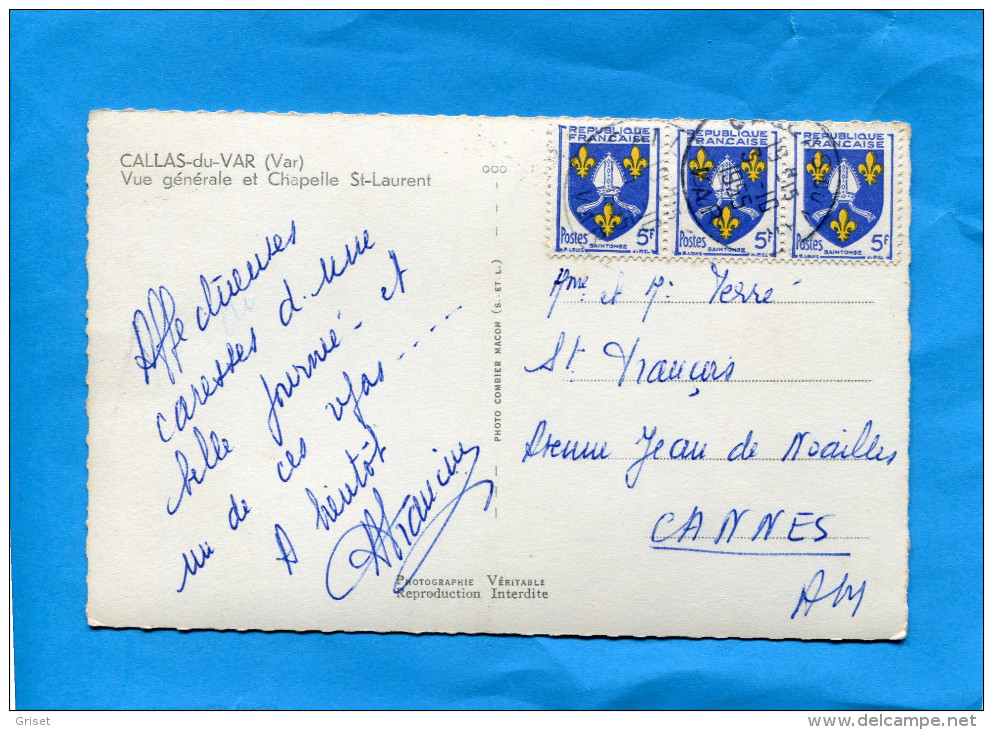 CALLAS-du-VAR (Var)
Vue générale et Chapelle St-Laurent
Affectueuses
caresses d'une
belle journée et
un de ces
A bientôt
Francine
PHOTO COMBIER MACON (S. ET L.)
PHOTOGRAPHIE VÉRITABLE
Reproduction Interdite
REPUBLIQUE FRANÇAISE
Postes 5F
SAINTONGE
REPUBLIQUE FRANÇAISE
Postes 5F
SAINTONGE
REPUBLIQUE FRANÇAISE
Postes 5F
SAINTONGE
1955
VAR
Mme et Mr
St François
Avenue Jean de Noailles
CANNES
AM
Griset
http://www.delcampe.net